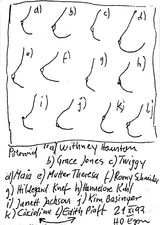 a) b) c) d)
e) f) g) h)
i) j) k) l)
Polaroid a) Withney Houston
b) Grace Jones c) Twiggy
d) Maia e) Mutter Theresa f) Romy Schneider
g) Hildegard Knef h) Hannelore Kohl
i) Janett Jackson j) Kim Basinger
k) Cicciolina l) Edith Piaff 21
HO